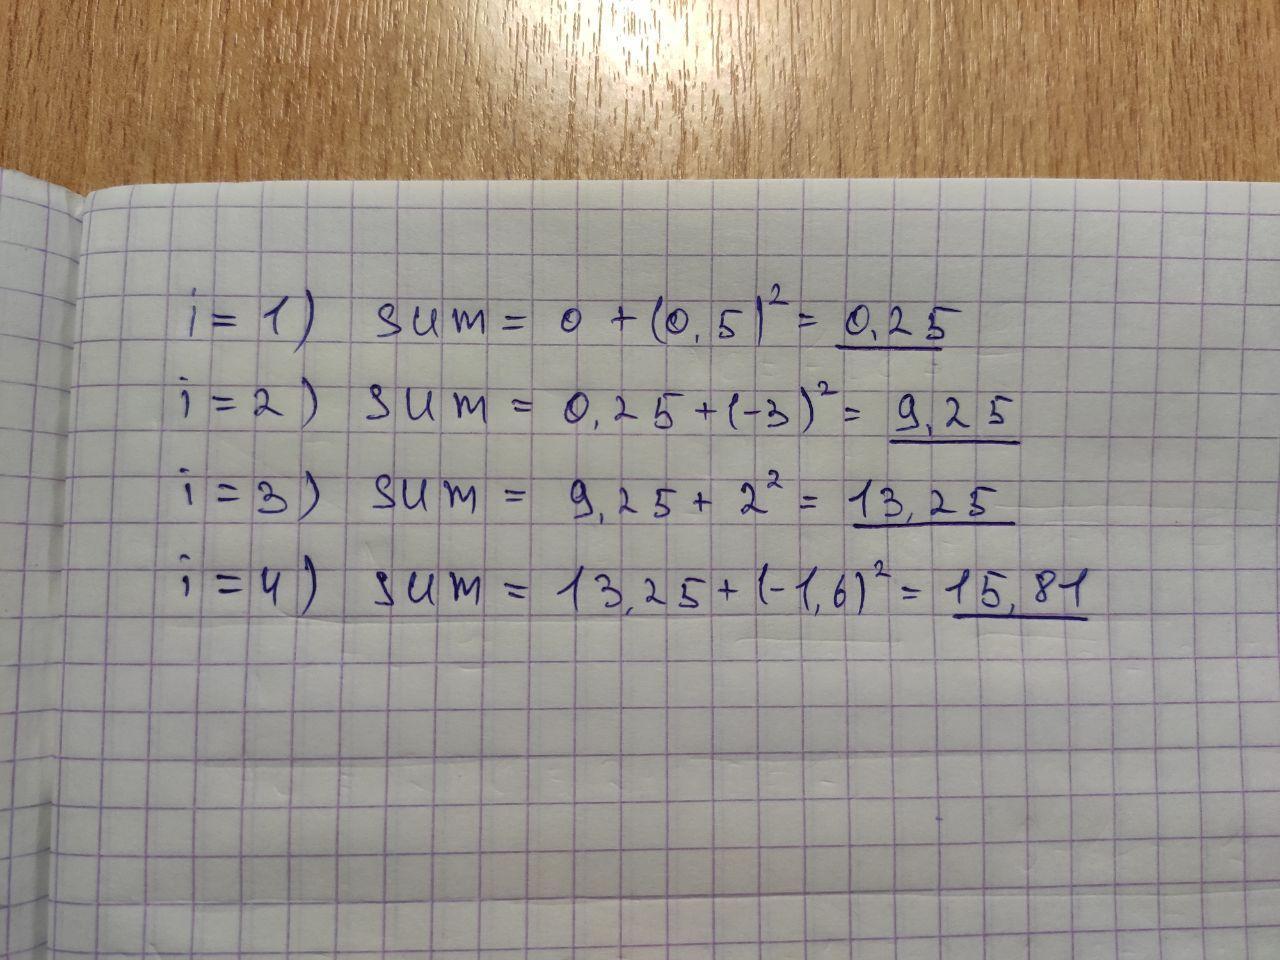 i = 1) sum = 0 + (0,5)² = 0,25
i = 2) sum = 0,25 + (-3)² = 9,25
i = 3) sum = 9,25 + 2² = 13,25
i = 4) sum = 13,25 + (-1,6)² = 15,81